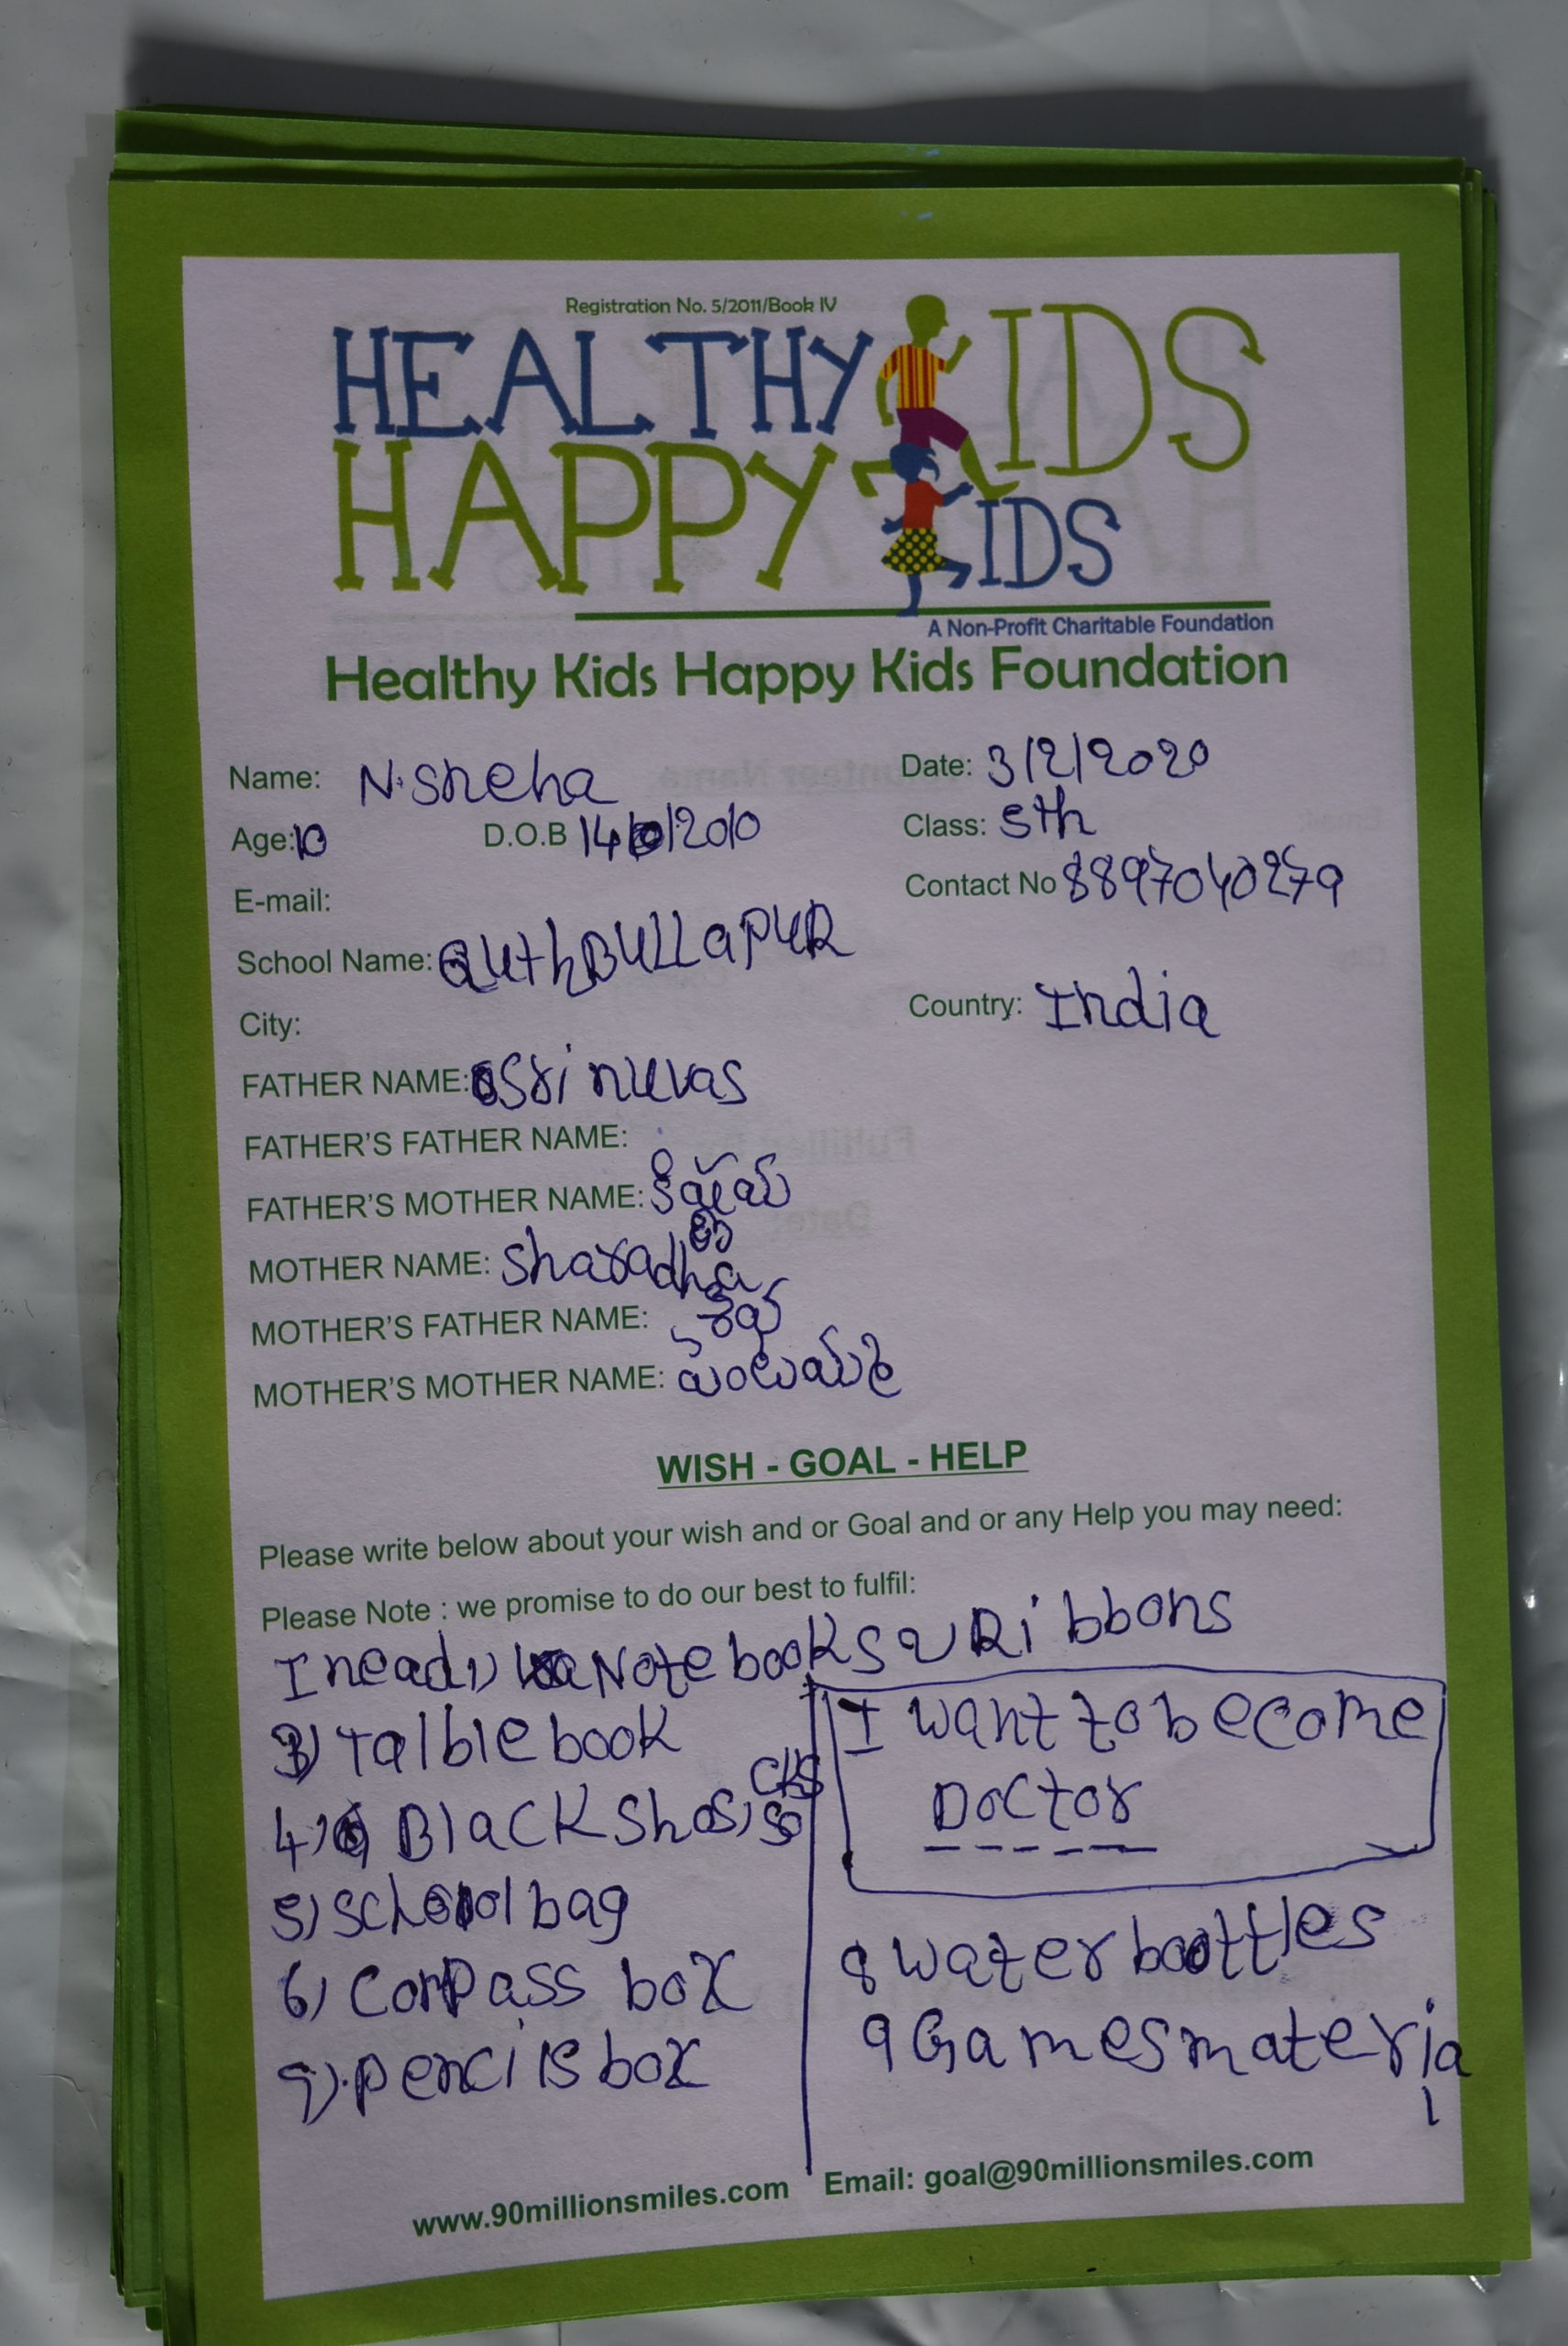 Registration No. 5/2011/Book IV
HEALTHY KIDS
HAPPY KIDS
A Non-Profit Charitable Foundation
Healthy Kids Happy Kids Foundation
Name: N. Sneha Date: 3/2/2020
Age: 10 D.O.B Class: 5th
E-mail: Contact No 8897040279
School Name: QuthBULLaPUR
City: Country: India
FATHER NAME: Ssrinuvas
FATHER'S FATHER NAME:
FATHER'S MOTHER NAME:
MOTHER NAME: sharadha
MOTHER'S FATHER NAME:
MOTHER'S MOTHER NAME:
WISH - GOAL - HELP
Please write below about your wish and or Goal and or any Help you may need:
Please Note : we promise to do our best to fulfil:
I nead 1) Note books 2 Ribbons
3) Talble book
4) Black shos,
5) school bag
6) Compass box
pencils box
I want to become
Doctor
8 water boottles
9 Games material
www.90millionsmiles.com Email: goal@90millionsmiles.com